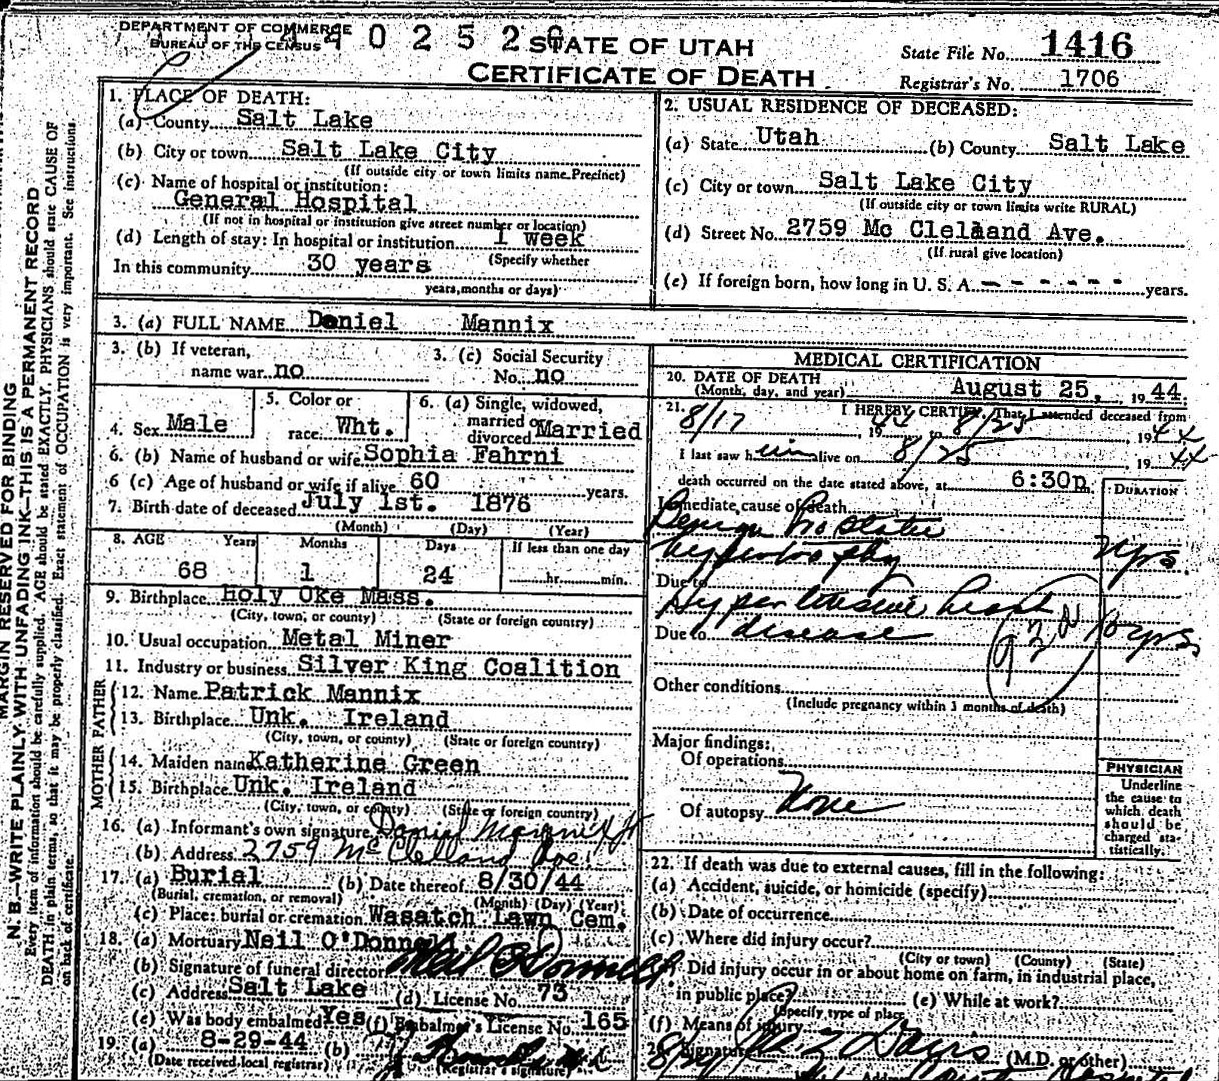 DEPARTMENT OF COMMERCE
BUREAU OF THE CENSUS
STATE OF UTAH
CERTIFICATE OF DEATH
State File No. 1416
Registrar's No. 1706
MARGIN RESERVED FOR BINDING
N. B.—WRITE PLAINLY WITH UNFADING INK—THIS IS A PERMANENT RECORD
Every item of information should be carefully supplied. AGE should be stated EXACTLY. PHYSICIANS should state CAUSE OF
DEATH in plain terms, so that it may be properly classified. Exact statement of OCCUPATION is very important. See instructions
on back of certificate.
1. PLACE OF DEATH:
(a) County Salt Lake
(b) City or town Salt Lake City
(If outside city or town limits name Precinct)
(c) Name of hospital or institution:
General Hospital
(If not in hospital or institution give street number or location)
(d) Length of stay: In hospital or institution 1 week
(Specify whether
In this community 30 years
years, months or days)
2. USUAL RESIDENCE OF DECEASED:
(a) State Utah (b) County Salt Lake
(c) City or town Salt Lake City
(If outside city or town limits write RURAL)
(d) Street No. 2759 Mc Clelland Ave.
(If rural give location)
(e) If foreign born, how long in U. S. A. - - - - - - years.
3. (a) FULL NAME Daniel Mannix
3. (b) If veteran,
name war no
3. (c) Social Security
No. no
4. Sex Male
5. Color or
race Wht.
6. (a) Single, widowed,
married or
divorced Married
6. (b) Name of husband or wife Sophia Fahrni
6 (c) Age of husband or wife if alive 60 years.
7. Birth date of deceased July 1st. 1876
(Month) (Day) (Year)
8. AGE Years Months Days If less than one day
68 1 24 hr. min.
9. Birthplace Holy Oke Mass.
(City, town, or county) (State or foreign country)
10. Usual occupation Metal Miner
11. Industry or business Silver King Coalition
FATHER
12. Name Patrick Mannix
13. Birthplace Unk. Ireland
(City, town, or county) (State or foreign country)
MOTHER
14. Maiden name Katherine Green
15. Birthplace Unk. Ireland
(City, town, or county) (State or foreign country)
16. (a) Informant's own signature Daniel Mannix Jr
(b) Address 2759 McClelland Ave.
17. (a) Burial (b) Date thereof 8/30/44
(Burial, cremation, or removal) (Month) (Day) (Year)
(c) Place: burial or cremation Wasatch Lawn Cem.
18. (a) Mortuary Neil O'Donnell
(b) Signature of funeral director Neil O'Donnell
(c) Address Salt Lake (d) License No. 73
(e) Was body embalmed Yes (f) Embalmer's License No. 165
19. (a) 8-29-44 (b)
(Date received local registrar) (Registrar's signature)
MEDICAL CERTIFICATION
20. DATE OF DEATH
(Month, day, and year) August 25, 1944.
21. I HEREBY CERTIFY, That I attended deceased from
8/17, 1944 to 8/25, 1944
I last saw him alive on 8/25, 1944
death occurred on the date stated above, at 6:30p
DURATION
Immediate cause of death
Benign Prostatic
hypertrophy yrs.
Due to
Hypertensive heart
Due to disease 10 yrs.
Other conditions
(Include pregnancy within 3 months of death)
Major findings:
Of operations
Of autopsy None
PHYSICIAN
Underline
the cause to
which death
should be
charged sta-
tistically.
22. If death was due to external causes, fill in the following:
(a) Accident, suicide, or homicide (specify)
(b) Date of occurrence
(c) Where did injury occur?
(City or town) (County) (State)
Did injury occur in or about home on farm, in industrial place,
in public place? (e) While at work?
(Specify type of place
(f) Means of injury
Signature (M.D. or other)